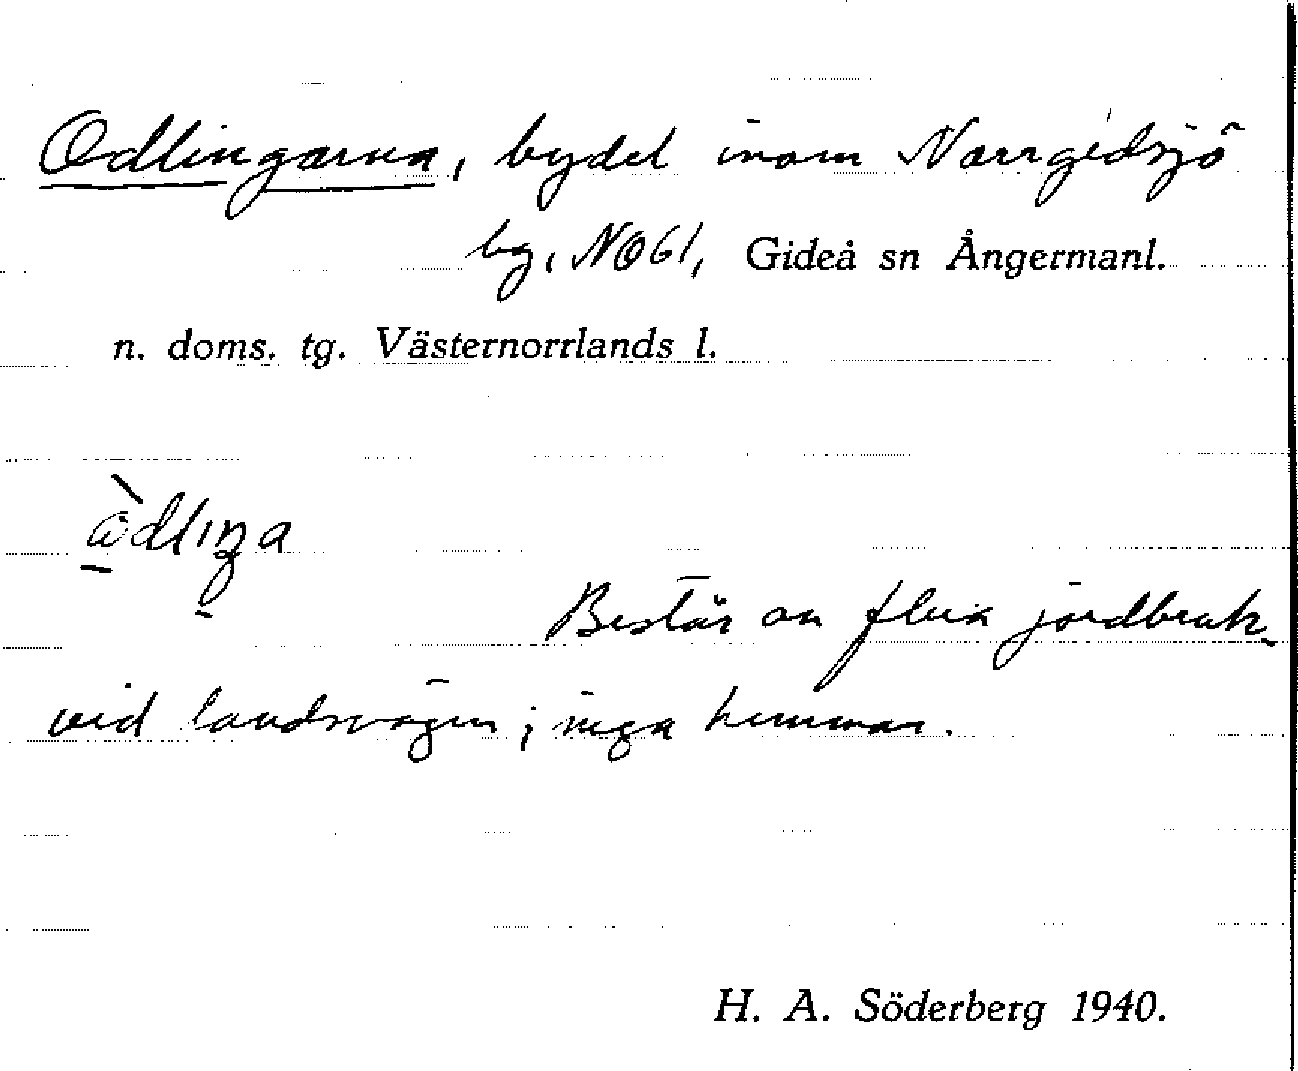 Odlingarna, bydel inom Norrgidsjö
by, NO61, Gideå sn Ångermanl.
n. doms. tg. Västernorrlands l.
Består av flera jordbruk
vid landsvägen; inga hemman.
H. A. Söderberg 1940.